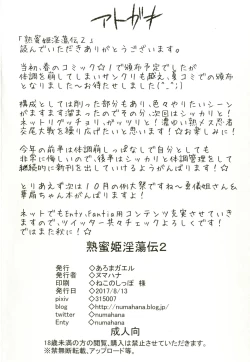 アトガキ
「熟蜜姫淫蕩伝2」
読んでいただきありがとうございます。
当初、春のコミック☆1で頒布予定でしたが
体調を崩してしまいサンクリも越え、夏コミでの頒布
となりました〜お待たせしました(^_^;)
構成としては削った部分もあり、色々やりたいシーン
がまだまだ溜まったのでその分、次回はシッカリと!
ネットリグッチョリ、ガッツリ!と濃ゆい熟メス忍者
交尾大戦を繰り広げたいと思います!☆お楽しみに!
今年の前半は体調崩しっぱなしで自分としても
非常に悔しいので、後半はシッカリと体調管理をして
継続的に新刊を出していけるようがんばります!☆
とりあえず次は10月の例大祭ですね〜
ちゃん本がんばりますよ!
ネットでもEnty、Fantia用コンテンツ充実させていき
ますので、ツイッター共々チェックよろしくです!
ではまた秋に!☆
熟蜜姫淫蕩伝2
発行 ◇あろまガエル
発行者 ◇ヌマハナ
印刷 ◇ねこのしっぽ 様
発行日 ◇2017/8/13
pixiv ◇315007
blog ◇http://numahana.blog.jp/
twitter ◇numahana
Enty ◇numahana
成人向
18歳未満の方の閲覧、購入は禁止させていただきます。
※禁無断転載、アップロード等。